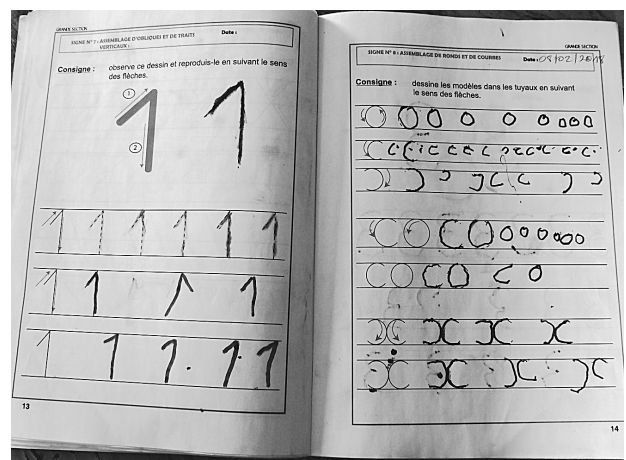 GRANDE SECTION
SIGNE N° 7 : ASSEMBLAGE D'OBLIQUES ET DE TRAITS
VERTICAUX :
Date :
Consigne : observe ce dessin et reproduis-le en suivant le sens
des flèches.
1
2
13
GRANDE SECTION
SIGNE N° 8 : ASSEMBLAGE DE RONDS ET DE COURBES
Date : 08/02/2018
Consigne : dessine les modèles dans les tuyaux en suivant
le sens des flèches.
14